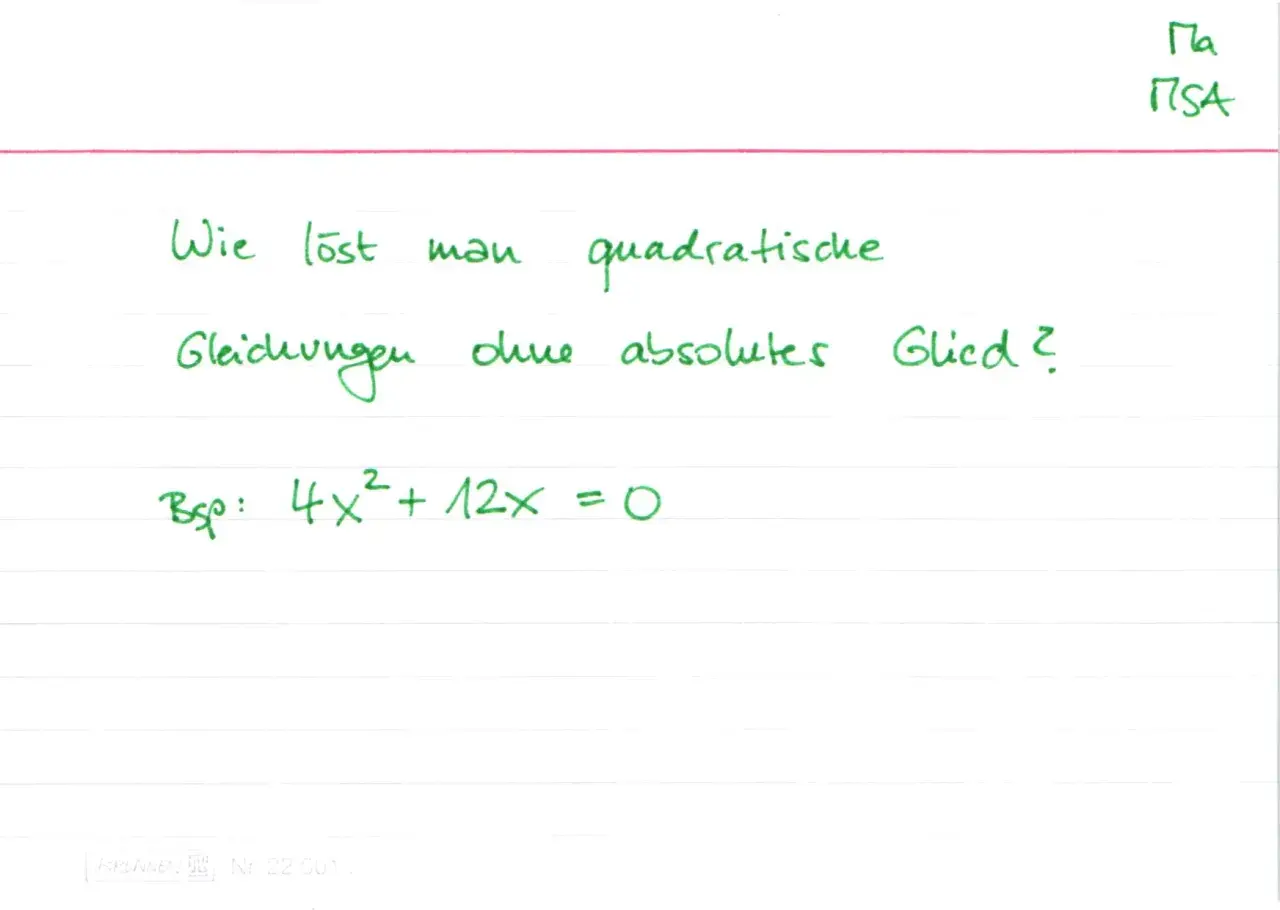 Ma
MSA
Wie löst man quadratische
Gleichungen ohne absolutes Glied?
Bsp: 4x² + 12x = 0
Nr. 22 001